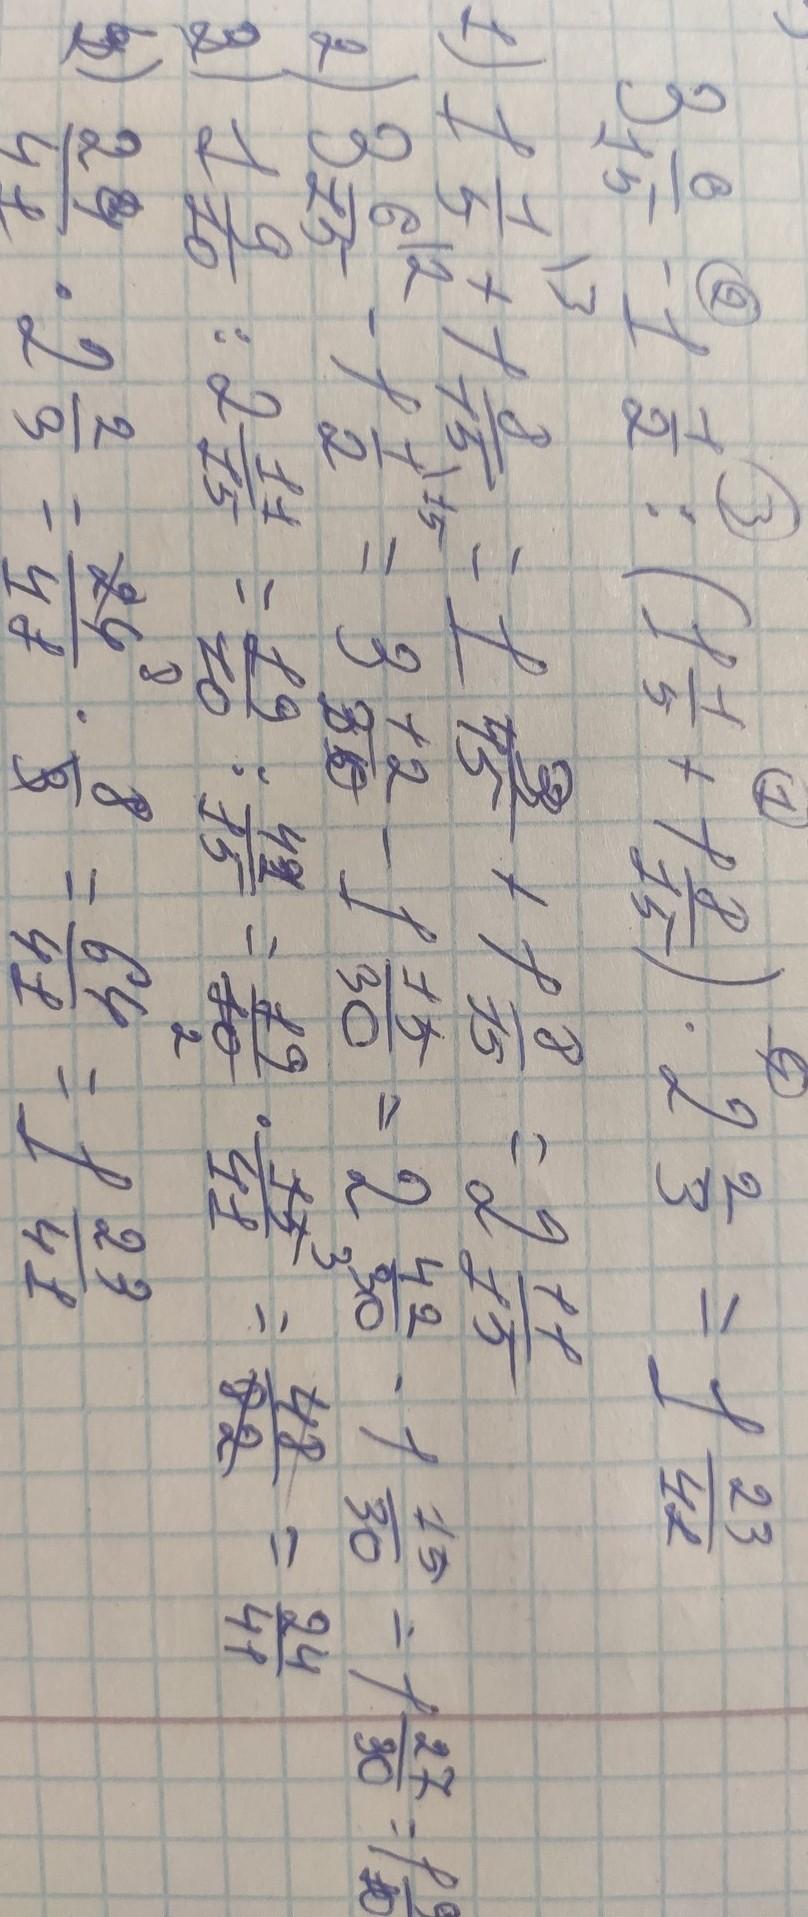 3 6/15 - 1 1/2 : (1 1/5 + 1 8/15) · 2 2/3 = 1 23/41
1) 1 1/5 \3 + 1 8/15 = 1 3/15 + 1 8/15 = 2 11/15
2) 3 6/15 \2 - 1 1/2 \15 = 3 12/30 - 1 15/30 = 2 42/30 - 1 15/30 = 1 27/30 = 1 9/10
3) 1 9/10 : 2 11/15 = 19/10 : 41/15 = 19/10 2 · 15/41 3 = 48/82 = 24/41
24/41 · 2 2/3 = 24/41 8 · 8/3 = 64/41 = 1 23/41